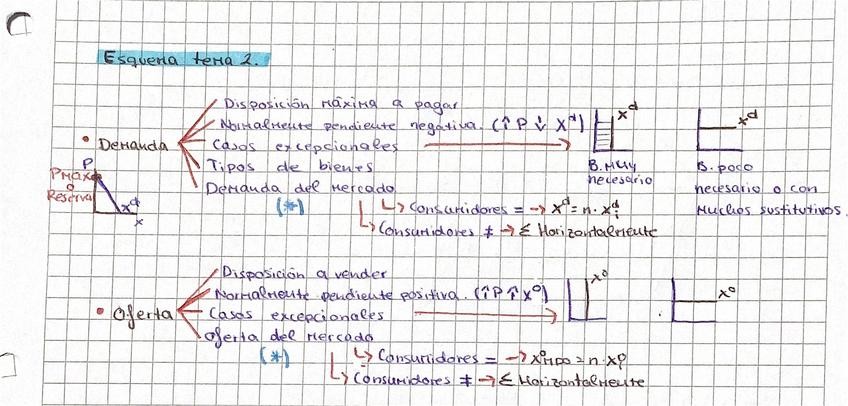 Esquema tema 2.
Disposición máxima a pagar
Normalmente pendiente negativa. (↑P ↓ X^d)
• Demanda
Casos excepcionales
Tipos de bienes
Demanda del mercado
(*)
P
Pmáx
o
Reserva
x^d
x
x^d
B. muy
necesario
x^d
B. poco
necesario o con
muchos sustitutivos.
↳ Consumidores = → x^d = n · x^d_i
↳ Consumidores ≠ → Σ Horizontalmente
Disposición a vender
Normalmente pendiente positiva. (↑P ↑ x^o)
• Oferta
Casos excepcionales
Oferta del mercado
(*)
x^o
x^o
↳ Consumidores = → x^o_MDO = n · x^o_i
↳ Consumidores ≠ → Σ Horizontalmente